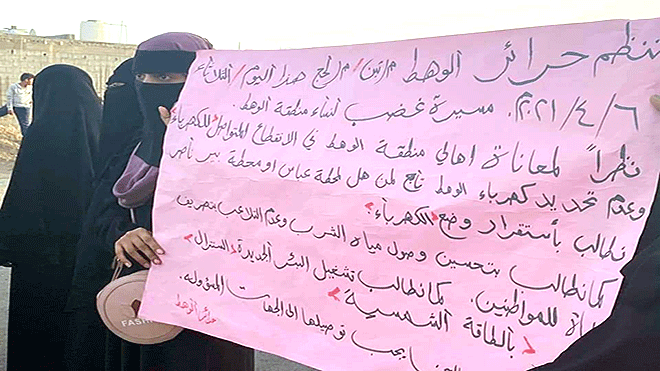 تنظم حرائر الوهط م/تبن/ م/لحج هذا اليوم/ الثلاثاء
٦/٤/٢٠٢١م. مسيرة غضب لنساء منطقة الوهط.
نظراً لمعاناة اهالي منطقة الوهط في الانقطاع المتواصل للكهرباء
وعدم تحديد كهرباء الوهط تابع لمن هل لمحطة عباس او محطة بير ناصر
نطالب بأستقرار وضع الكهرباء؟
كما نطالب بتحسين وصول مياه الشرب وعدم التلاعب بتصريف
للمواطنين. كما نطالب تشغيل البئر الجديدة
بالطاقة الشمسية
يجب توصيلها الى الجهات المسؤوله.
حرائر الوهط
FASHION